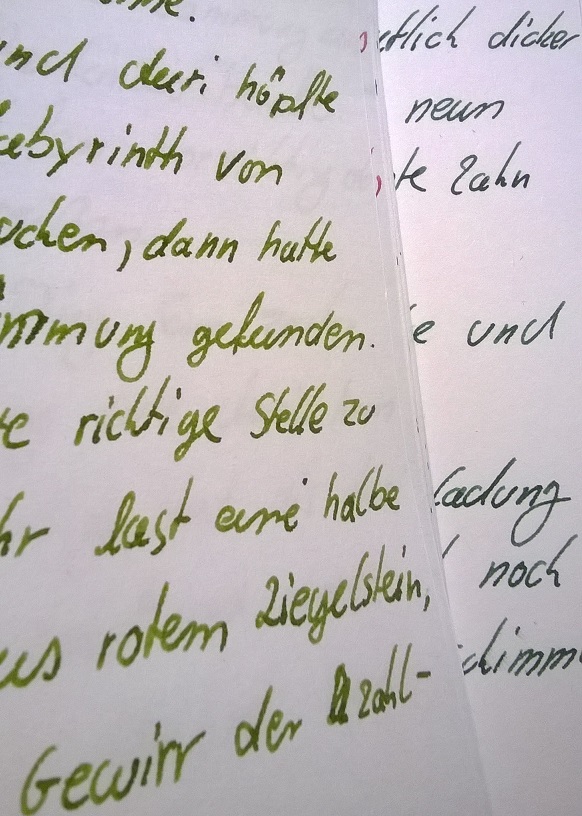 und duri hôpfte
Labyrinth von
uchen, dann hatte
immung gefunden.
te richtige Stelle zu
ihr fast eine halbe
aus rotem Ziegelstein,
Gewirr der zahl-
utlich dicker
neun
te Zahn
e und
ladung
noch
chimm